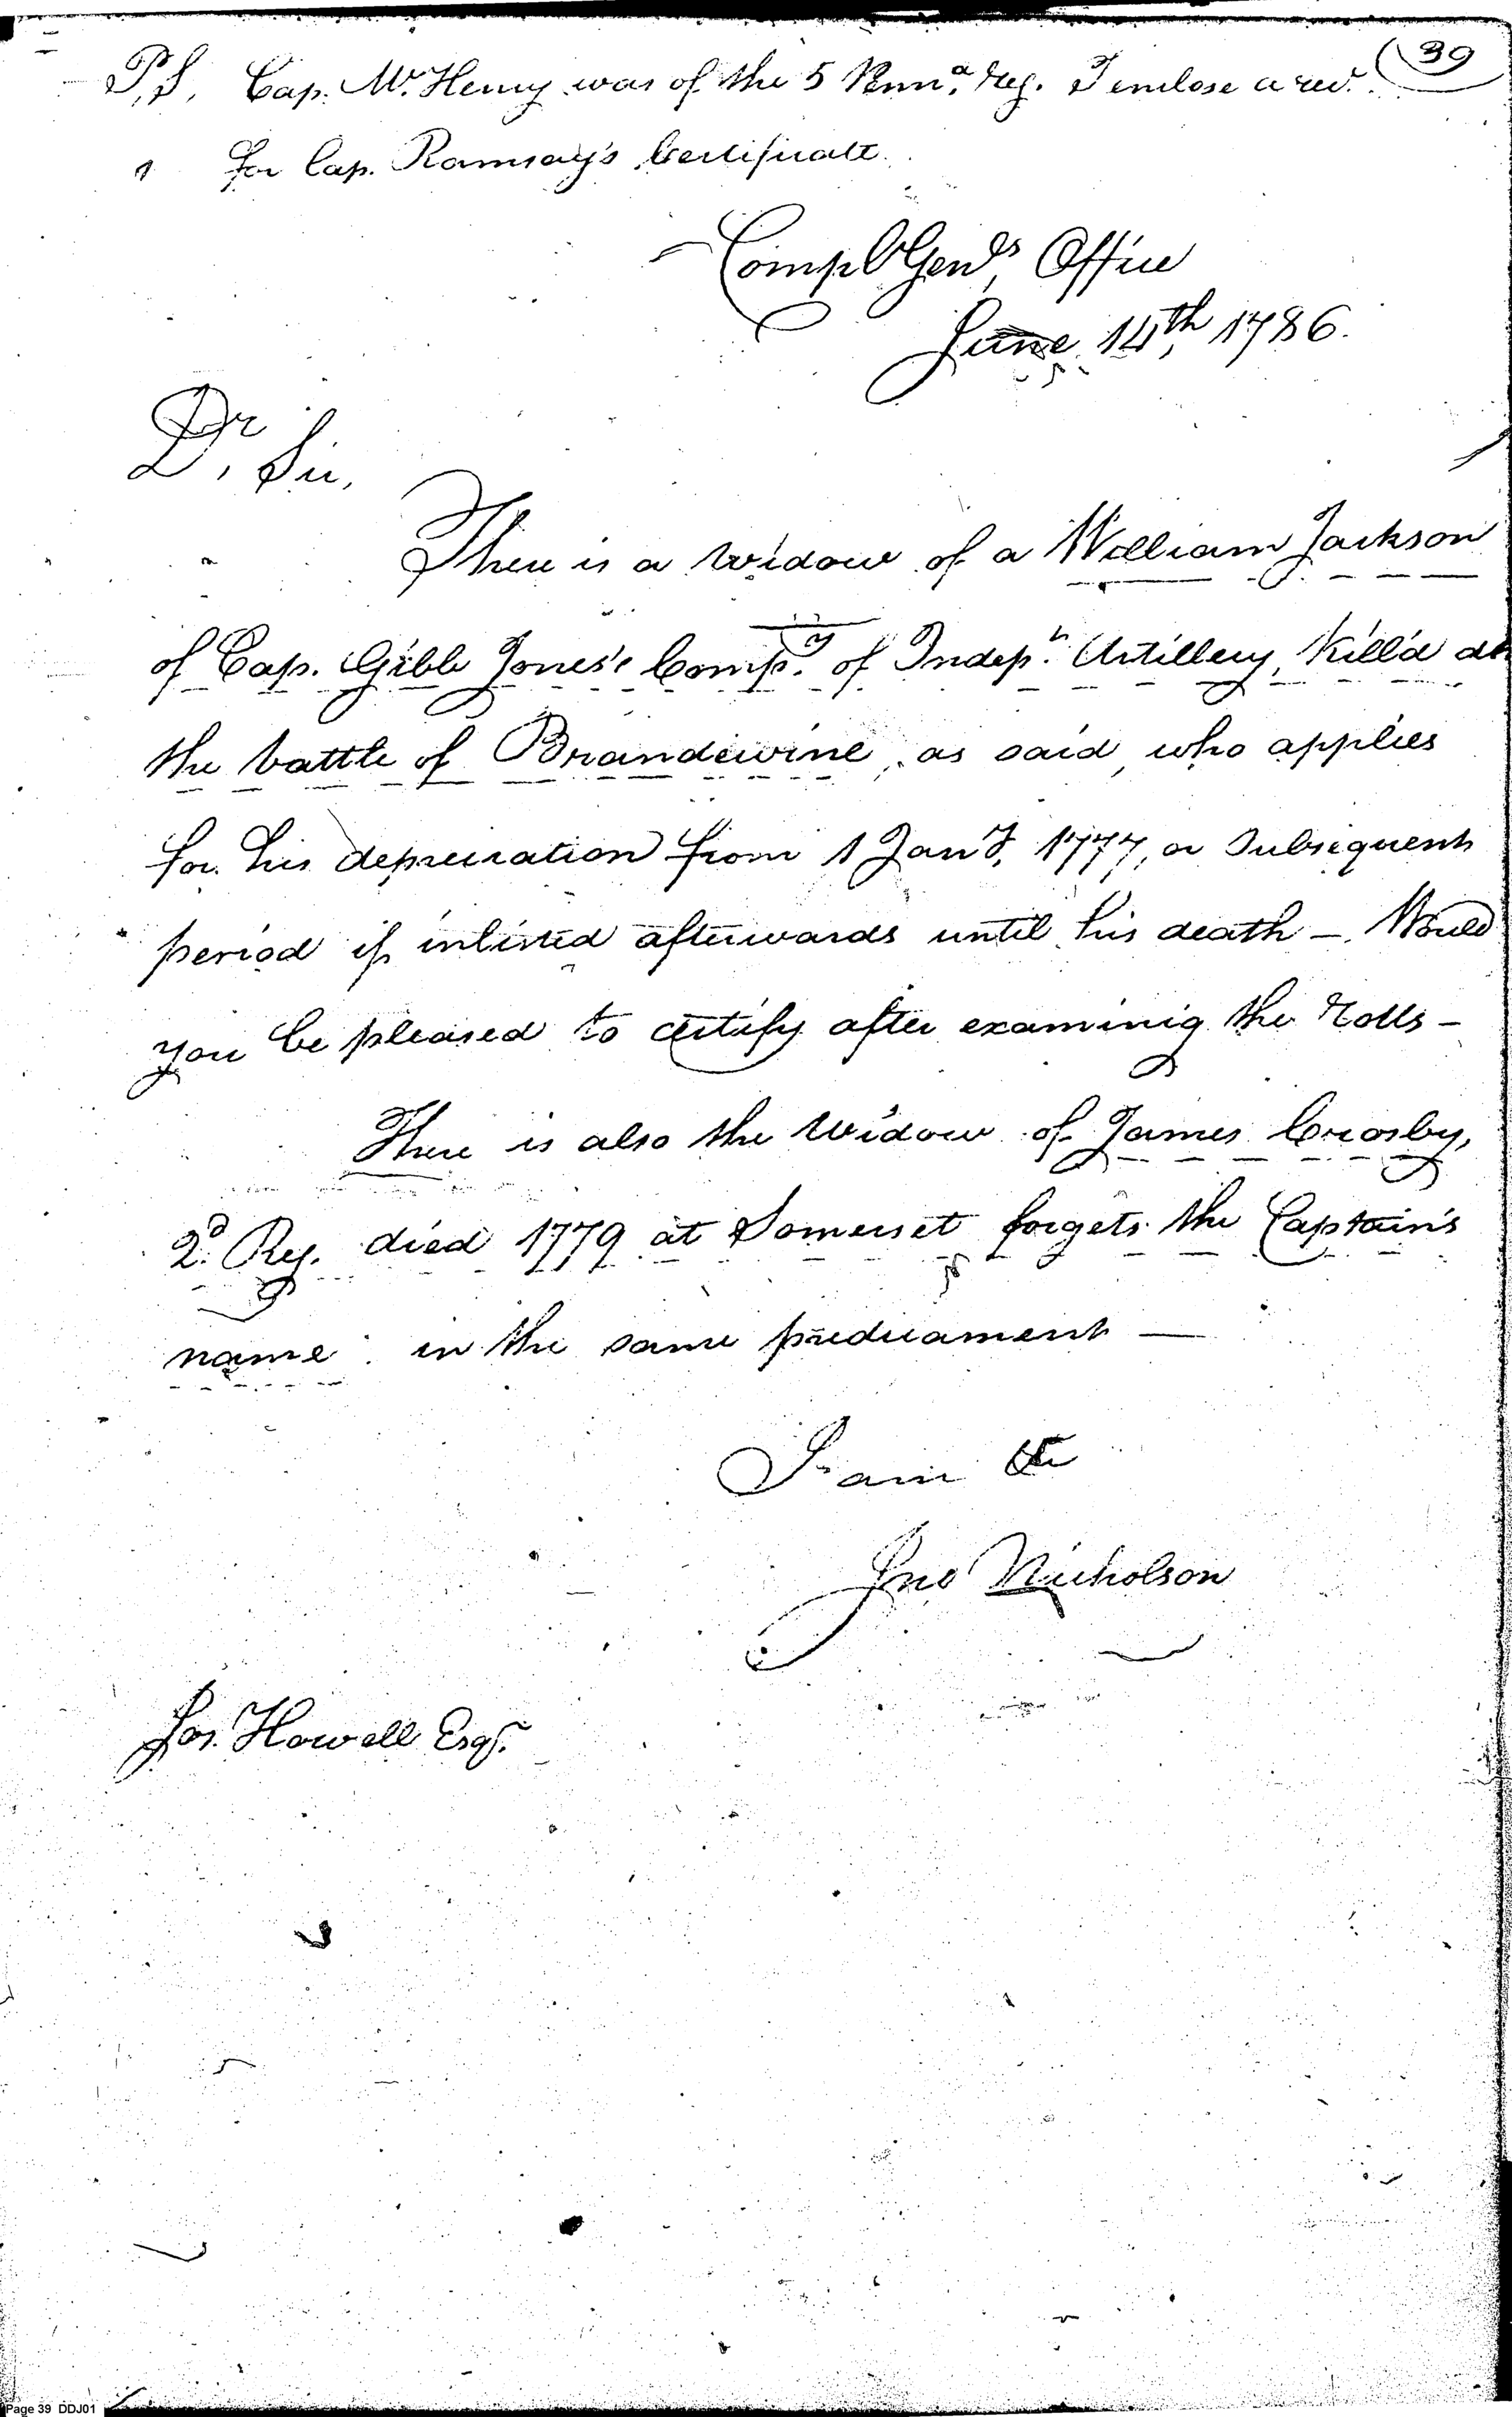 39
P.S. Cap. Mc.Henry was of the 5 Penna. Reg. I enclose a rec.
for Cap. Ramsay's Certificate.
Compl Genls Office
June 14th 1786.
Dr. Sir,
There is a widow of a William Jackson
of Cap. Gibb Jones's Compy. of Indept. Artillery, Kill'd at
the battle of Brandewine, as said, who applies
for his depreciation from 1 Jany. 1777, or Subsequent
period if inlisted afterwards until his death —. Would
you be pleased to certify after examinig the Rolls –
There is also the widow of James Crosby,
2d. Reg. died 1779 at Somerset forgets the Captain's
name. in the same predicament —
I am &c
Jno Nicholson
Jos. Howell Esqr.
Page 39 DDJ01